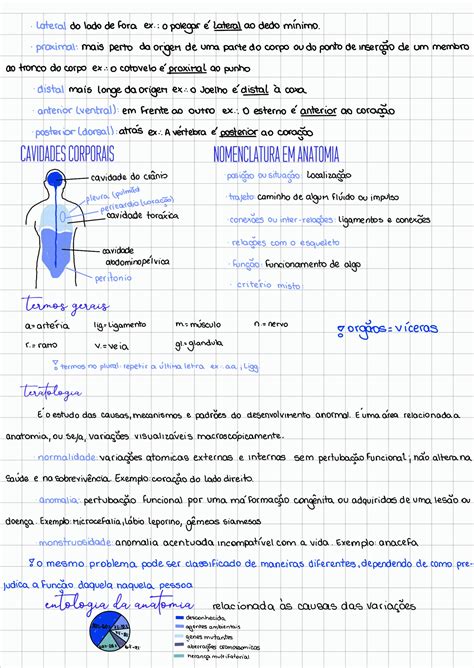 · lateral: do lado de fora ex.: o polegar é lateral ao dedo mínimo.
· proximal: mais perto da origem de uma parte do corpo ou do ponto de inserção de um membro
ao tronco do corpo ex.: o cotovelo é proximal ao punho
· distal: mais longe da origem ex.: o Joelho é distal à coxa.
· anterior (ventral): em frente ao outro ex.: O esterno é anterior ao coração
· posterior (dorsal): atrás ex.: A vértebra é posterior ao coração
CAVIDADES CORPORAIS
cavidade do crânio
pleura (pulmão)
pericardio (coração)
cavidade torácica
cavidade
abdominopélvica
peritonio
NOMENCLATURA EM ANATOMIA
· posição ou situação: localização
· trajeto: caminho de algum fluído ou impulso
· conexões ou inter-relações: ligamentos e conexões
· relações com o esqueleto
· função: funcionamento de algo
· critério misto:
termos gerais
a.= artéria lig.= ligamento m.= músculo n.= nervo
r.= ramo v.= veia gl.= glandula
termos no plural: repetir a última letra ex.: aa.; ligg
orgãos = víceras
teratologia
É o estudo das causas, mecanismos e padrões do desenvolvimento anormal. É uma área relacionada a
anatomia, ou seja, variações visualizáveis macroscópicamente.
· normalidade: variações atomicas externas e internas sem pertubação funcional; não altera na
saúde e na sobrevivência. Exemplo: coração do lado direito.
· anomalia: pertubação funcional por uma má formação congênita ou adquiridas de uma lesão ou
doença. Exemplo: Microcefalia, lábio leporino, gêmeos siamesas
· monstruosidade: anomalia acentuada incompatível com a vida. Exemplo: anacefa
o mesmo problema pode ser classificado de maneiras diferentes, dependendo de como pre-
judica a função daquela naquela pessoa
entologia da anatomia relacionada às causas das variações
desconhecida
agentes ambientais
genes mutantes
aberrações cromossomicas
herança multifatorial